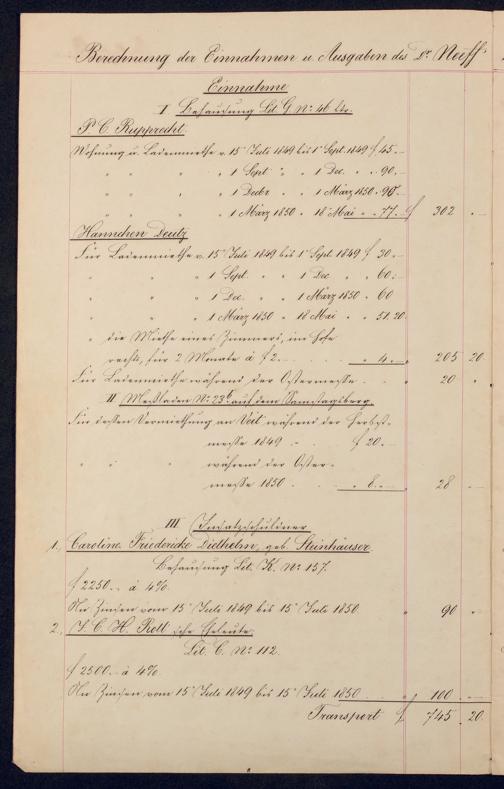 Berechnung der Einnahmen u. Ausgaben des Dr. Neeff's
Einnahme
I Behausung Lit. G. No. 46
P. C. Rupprecht.
Wohnung u. Ladenmiethe v. 15t Juli 1849 bis 1t Sept. 1849 f 45.–
" " " " 1 Sept " " 1 Dec. " " 90.–
" " " " 1 Decbr " " 1 März 1850 " 90.–
" " " " 1 März 1850 " 18t Mai " " 77.– f 302 –
Hannchen Deutz
Für Ladenmiethe v. 15t Juli 1849 bis 1t Sept. 1849 f 30.–
" " " " 1 Sept. " " 1 Dec " " 60.–
" " " " 1 Dec. " " 1 März 1850 " 60
" " " " 1 März 1850 " 18 Mai " " 51.20.
" die Miethe eines Zimmers, im Hofe
rechts, für 2 Monate à f 2. " 4.– " 205 20.
Für Ladenmiethe während der Ostermesse " 20 "
II Meßladen No. 23 auf dem Samstagsberg.
Für dessen Vermiethung an Veit während der Herbst-
messe 1849 f 20.–
" " " während der Oster-
messe 1850 " 8.– " 28 –
III Insatzschuldner
1. Caroline Friedericke Diethelm, geb. Steinhäuser.
Behausung Lit. K. No. 157.
f 2250.– à 4%.
An Zinsen vom 15t Juli 1849 bis 15t Juli 1850. " 90 –
2. J. C. H. Rett'sche Eheleute.
Lit. C. No. 112.
f 2500.– à 4%.
An Zinsen vom 15t Juli 1849 bis 15t Juli 1850 " 100 –
Transport f 745 20.